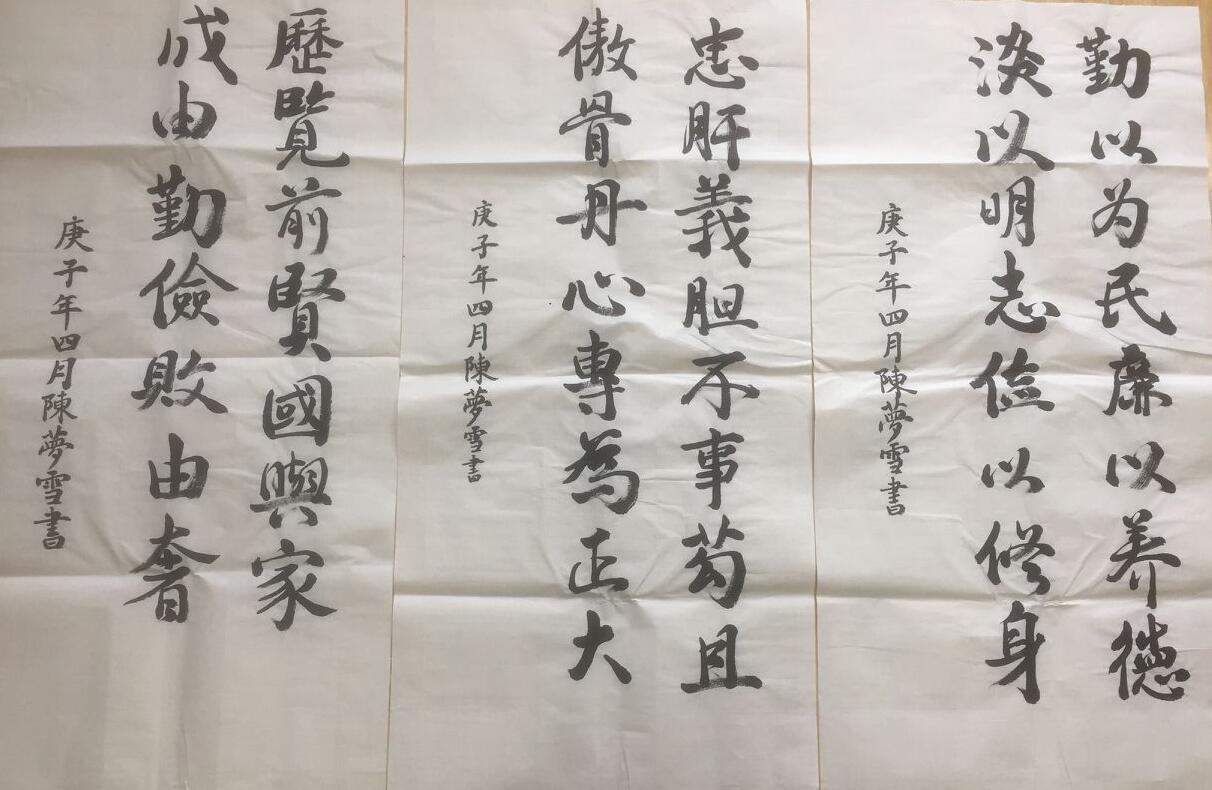 勤以为民廉以养德
淡以明志俭以修身
庚子年四月陳夢雪書
忠肝義胆不事苟且
傲骨丹心專為正大
庚子年四月陳夢雪書
歷覽前賢國與家
成由勤儉敗由奢
庚子年四月陳夢雪書